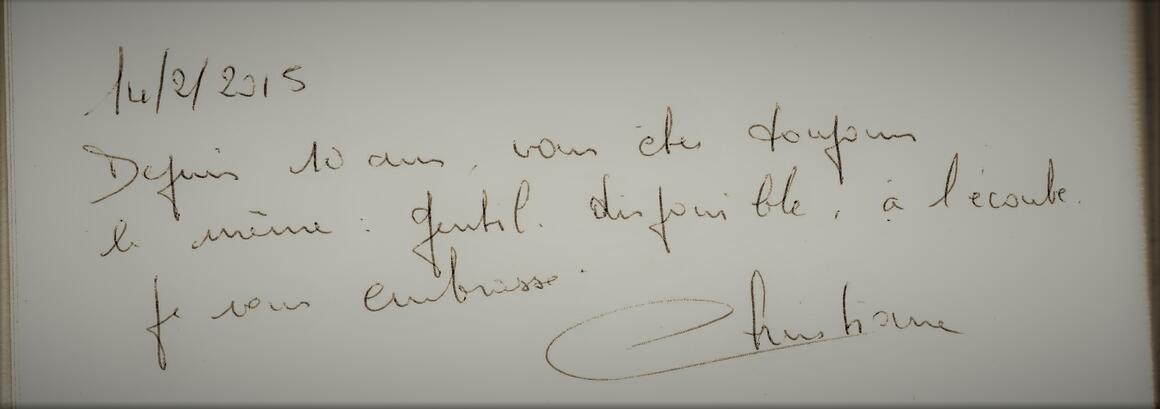 14/2/2015
Depuis 10 ans, vous êtes toujours
le même : gentil. disponible, à l'écoute.
Je vous embrasse.
Christiane